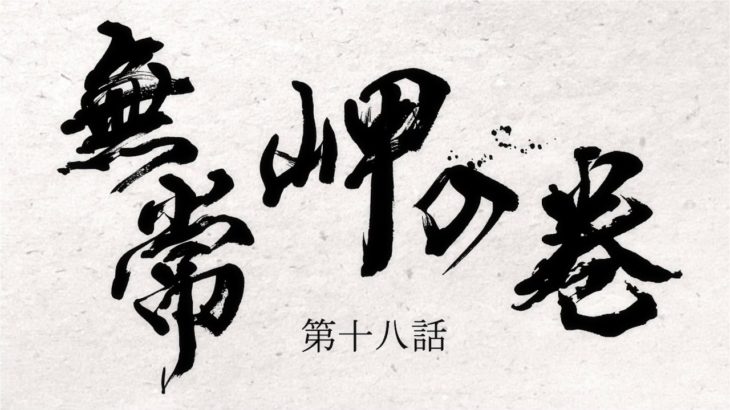 無常岬の巻
第十八話